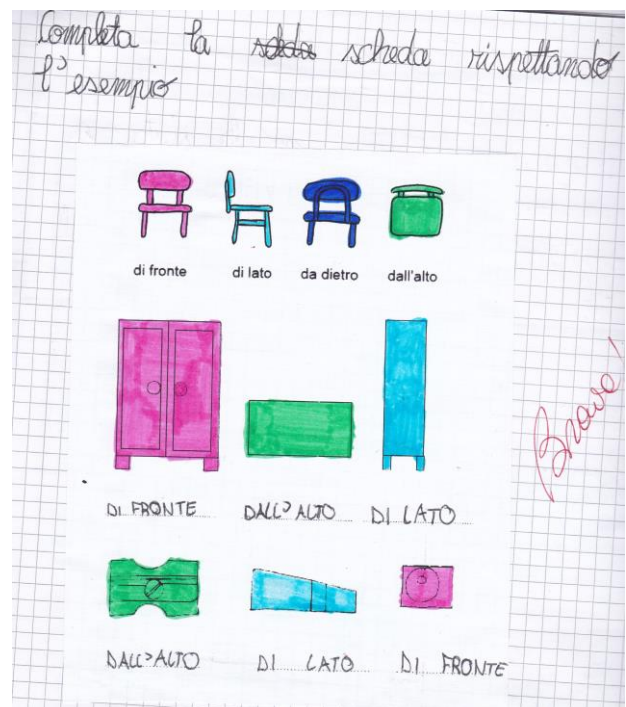 Completa la scheda rispettando
l'esempio
di fronte di lato da dietro dall'alto
DI FRONTE DALL'ALTO DI LATO
Brava!
DALL'ALTO DI LATO DI FRONTE